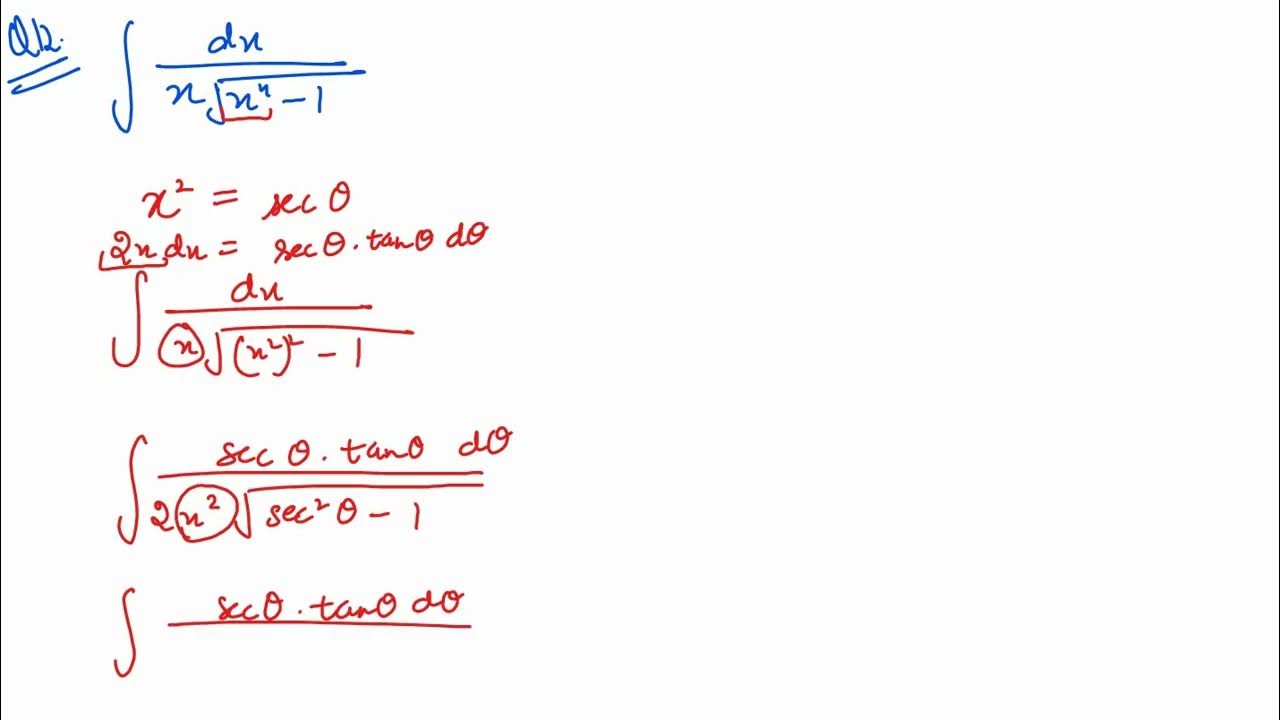 Q12.
∫ dx / (x√(x⁴ − 1))
x² = sec θ
2x dx = sec θ · tan θ dθ
∫ dx / (x√((x²)² − 1))
∫ sec θ · tan θ dθ / (2x²√(sec² θ − 1))
∫ sec θ · tan θ dθ